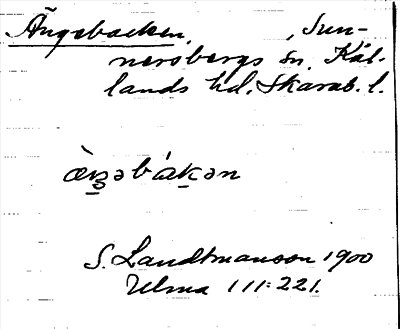 Ängebacken, Sun-
nersbergs sn. Kål-
lands hd. Skarab. l.
æ̀ŋəbákən
S. Landtmanson 1900
Ulma 111:221.